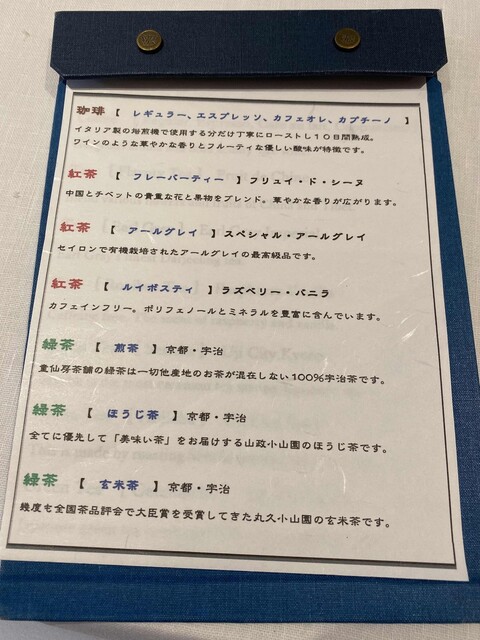 珈琲 【 レギュラー、エスプレッソ、カフェオレ、カプチーノ 】
イタリア製の焙煎機で使用する分だけ丁寧にローストし10日間熟成。
ワインのような華やかな香りとフルーティな優しい酸味が特徴です。
紅茶 【 フレーバーティー 】フリュイ・ド・シーヌ
中国とチベットの貴重な花と果物をブレンド。華やかな香りが広がります。
紅茶 【 アールグレイ 】スペシャル・アールグレイ
セイロンで有機栽培されたアールグレイの最高級品です。
紅茶 【 ルイボスティ 】ラズベリー・バニラ
カフェインフリー。ポリフェノールとミネラルを豊富に含んでいます。
緑茶 【 煎茶 】京都・宇治
童仙房茶舗の緑茶は一切他産地のお茶が混在しない100%宇治茶です。
緑茶 【 ほうじ茶 】京都・宇治
全てに優先して「美味い茶」をお届けする山政小山園のほうじ茶です。
緑茶 【 玄米茶 】京都・宇治
幾度も全国茶品評会で大臣賞を受賞してきた丸久小山園の玄米茶です。